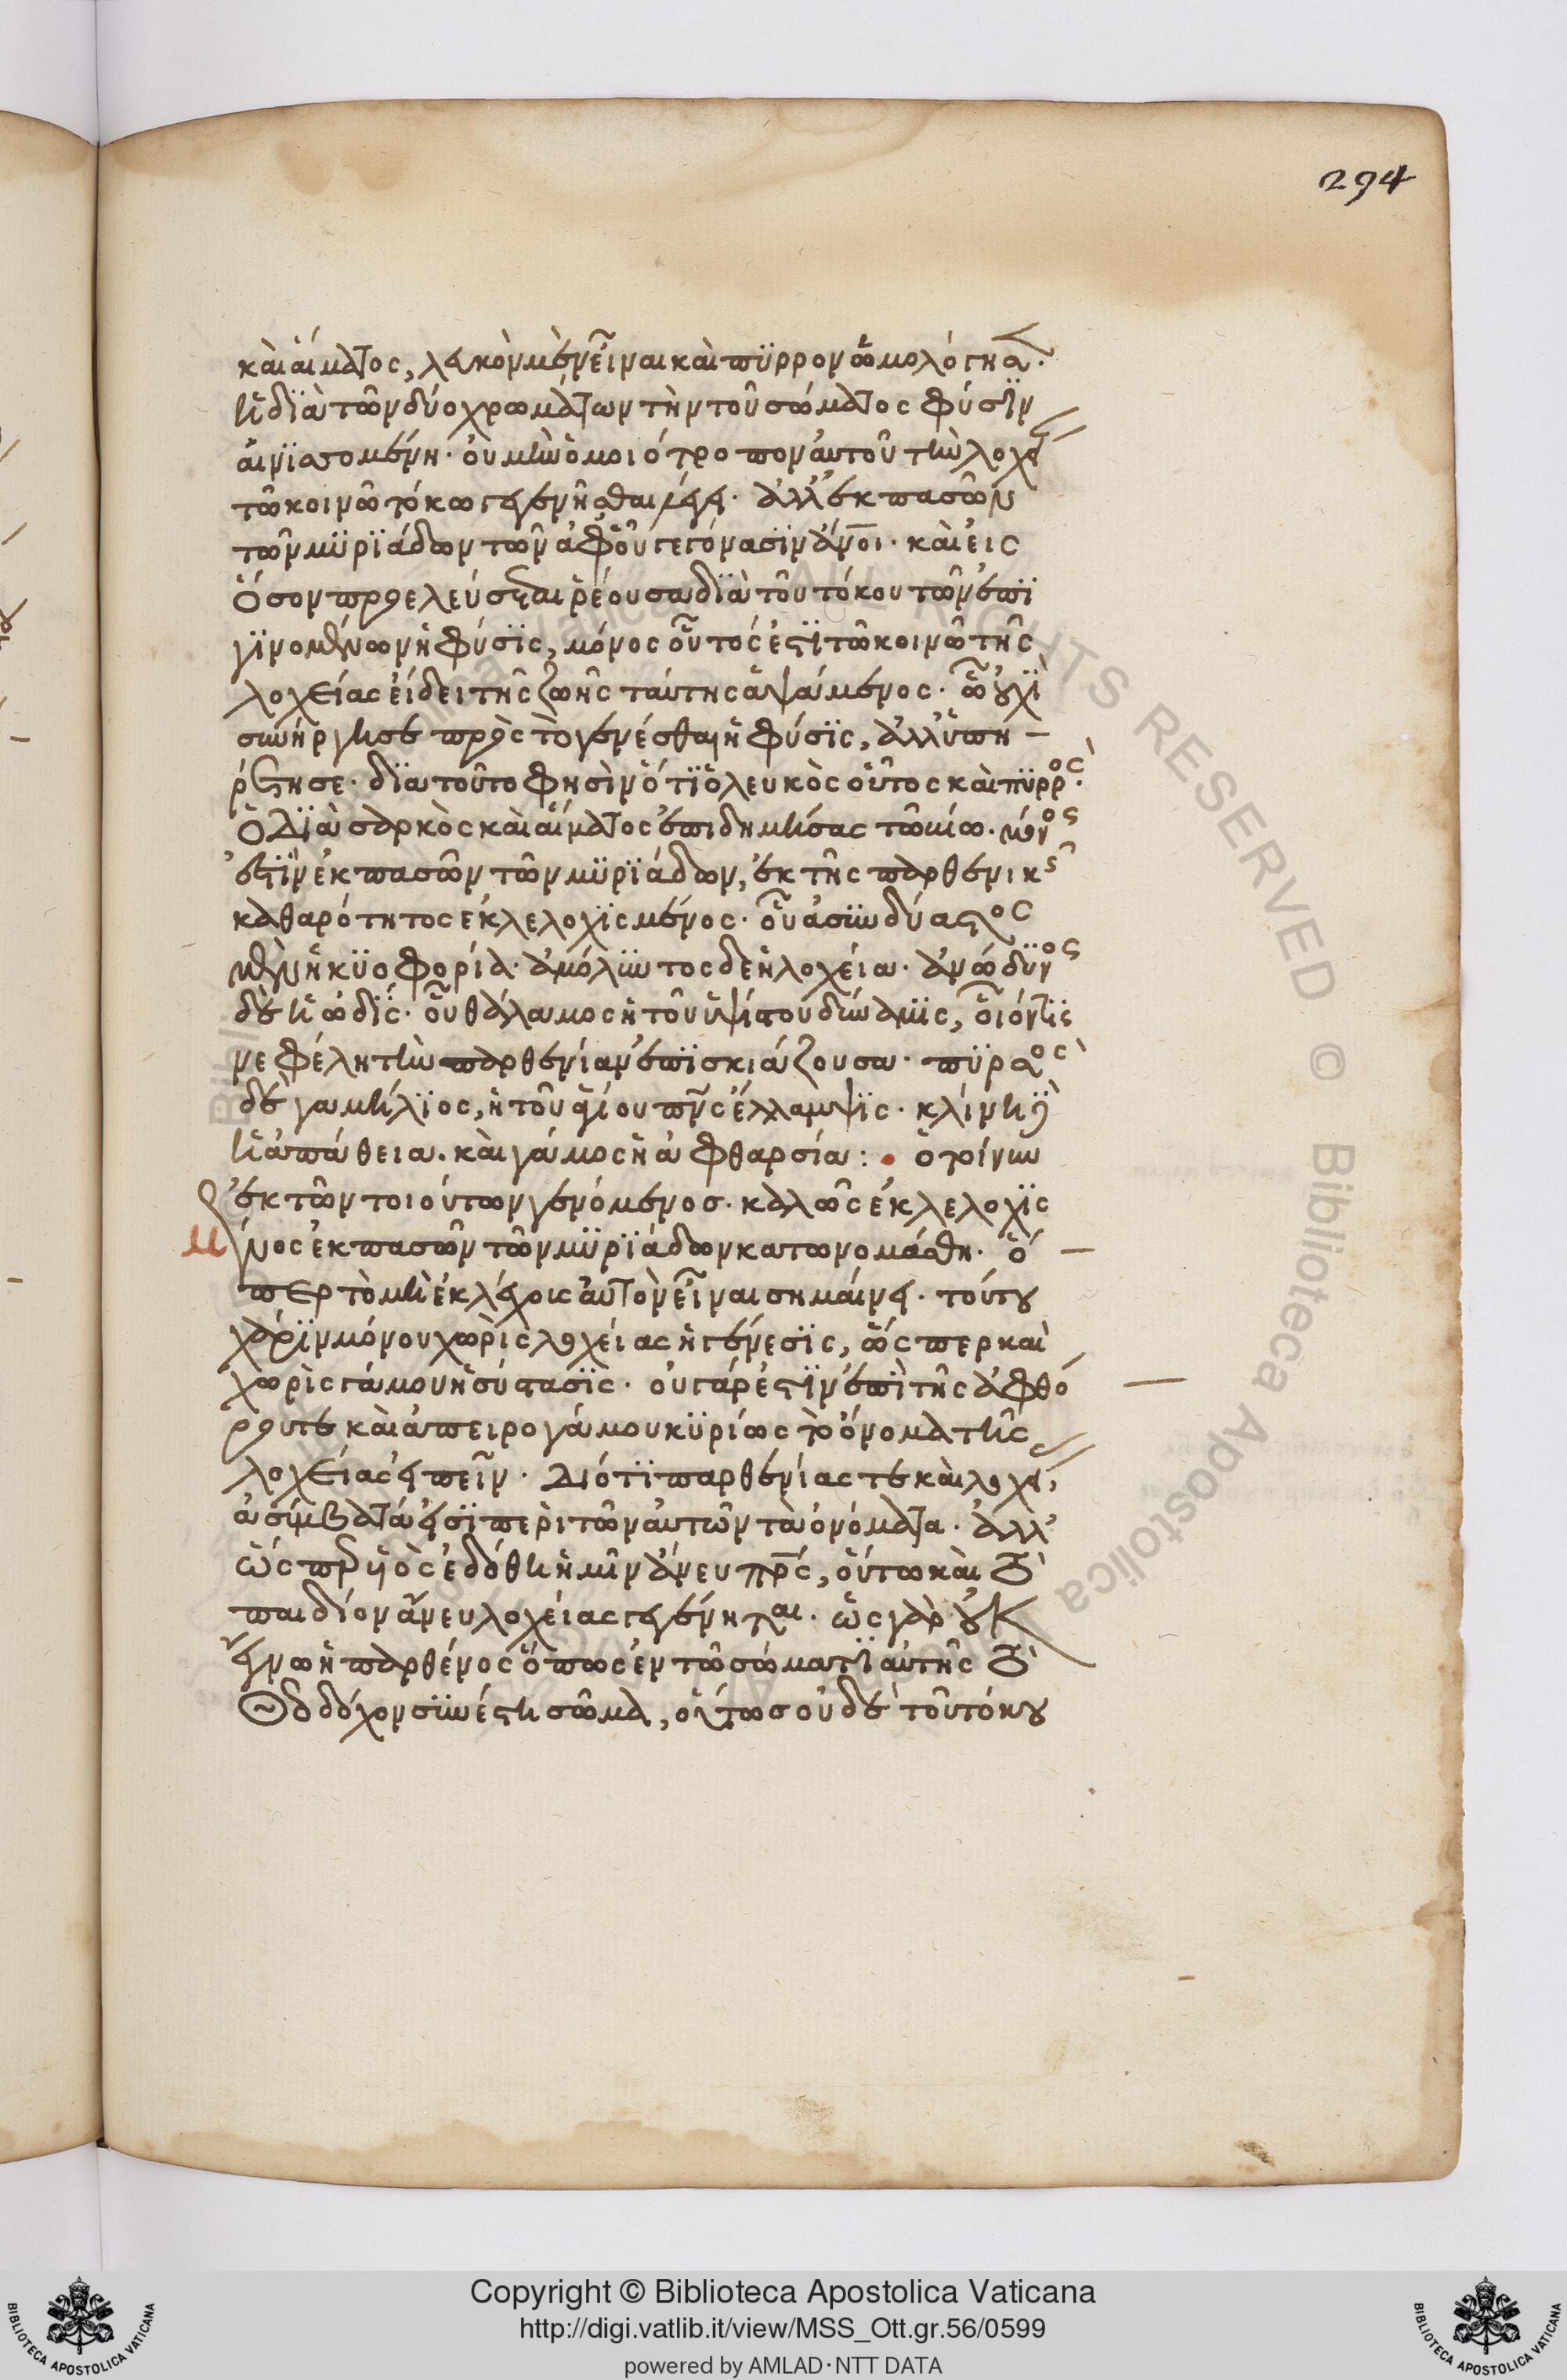 294
καὶ αἵματος, λευκὸν μὲν εἶναι καὶ πϋρρον ὡμολόγησε.
ἡ δϊὰ τῶν δύο χρωμάτων τὴν τοῦ σώματος φύσϊν
αἰνϊσσομένη. οὐ μὴν ὁμοιότροπον αὐτοῦ τὴν λοχεί
τῶ κοινῶ τόκω γεγενῆσθαι λέγει. ἀλλ' ἐκ πασῶν
τῶν μϋρϊάδων τῶν ἀφ' οὗ γεγόνασϊν ἄνοι. καὶ εἰς
ὅσον προελεύσεται ῥέουσα δϊὰ τοῦ τόκου τῶν ἐπϊ
γϊνομένων ἡ φύσϊς, μόνος οὗτός ἐστϊ τῶ κοινῶ τῆς
λοχείας εἴδει τῆς ζωῆς ταύτης ἁψάμενος. ὧ οὐχϊ
συνήργησε πρὸς τὸ γενέσθαι ἡ φύσϊς, ἀλλ' ὑπη
ρέτησε. δϊα τοῦτο φησὶν ὅτϊ ὁ λευκὸς οὗτος καὶ πϋρρὸς.
ὁ δϊὰ σαρκὸς καὶ αἵματος ἐπιδημήσας τῶ βίω. μόνος
ἐστϊν ἐκ πασῶν τῶν μϋρϊάδων, ἐκ τῆς παρθενικῆς
καθαρότητος ἐκλελοχϊσμένος. οὗ ἀσϋνδύαστος
μὲν ἡ κϋοφορία. ἀμόλϋντος δὲ ἡ λοχεία. ἀνώδϋνος
δὲ ἡ ὠδΐς. οὗ θάλαμος ἡ τοῦ ὑψίστου δύναμϊς, οἷόν τϊς
νεφέλη τὴν παρθενίαν ἐπϊσκιάζουσα. πϋρσὸς
δὲ γαμήλϊος, ἡ τοῦ ἁγίου πνς ἔλλαμψϊς. κλίνη δὲ
ἡ ἀπάθεια. καὶ γάμος ἡ ἀφθαρσία: ὁ τοίνυν
ἐκ τῶν τοιούτων γενόμενοσ. καλῶς ἐκλελοχϊς
μένος ἐκ πασῶν τῶν μϋρϊάδων κατωνομάσθη. ὅ
περ τὸ μὴ ἐκ λέχοις αὐτὸν εἶναι σημαίνει. τούτου
χάρϊν μόνου χωρὶς λοχείας ἡ γένεσϊς, ὥς περ καὶ
χωρὶς γάμου ἡ σύστασϊς. οὐ γάρ ἐστϊν ἐπϊ τῆς ἀφθό
ρου τε καὶ ἀπειρογάμου κϋρίως τὸ ὄνομα τῆς
λοχείας εἰπεῖν. Διότϊ παρθενίας τε καὶ λοχεί
ἀσύμβατά εἰσϊ περὶ τῶν αὐτῶν τὰ ὀνόματα. ἀλλ'
ὥς περ ϋἱὸς ἐδόθη ἡμῖν ἄνευ πρς, οὕτω καὶ τὸ
παιδίον ἄνευ λοχείας γεγένηται. ὡς γὰρ οὐκ
ἔγνω ἡ παρθένος ὅπως ἐν τῶ σώματϊ αὐτῆς τὸ
θεοδόχον σϋνέστη σῶμα, οὕτωσ οὐδὲ τοῦ τόκου
Copyright © Biblioteca Apostolica Vaticana
http://digi.vatlib.it/view/MSS_Ott.gr.56/0599
powered by AMLAD·NTT DATA